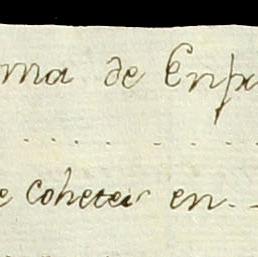 ma de Enpr
e coheter en. -